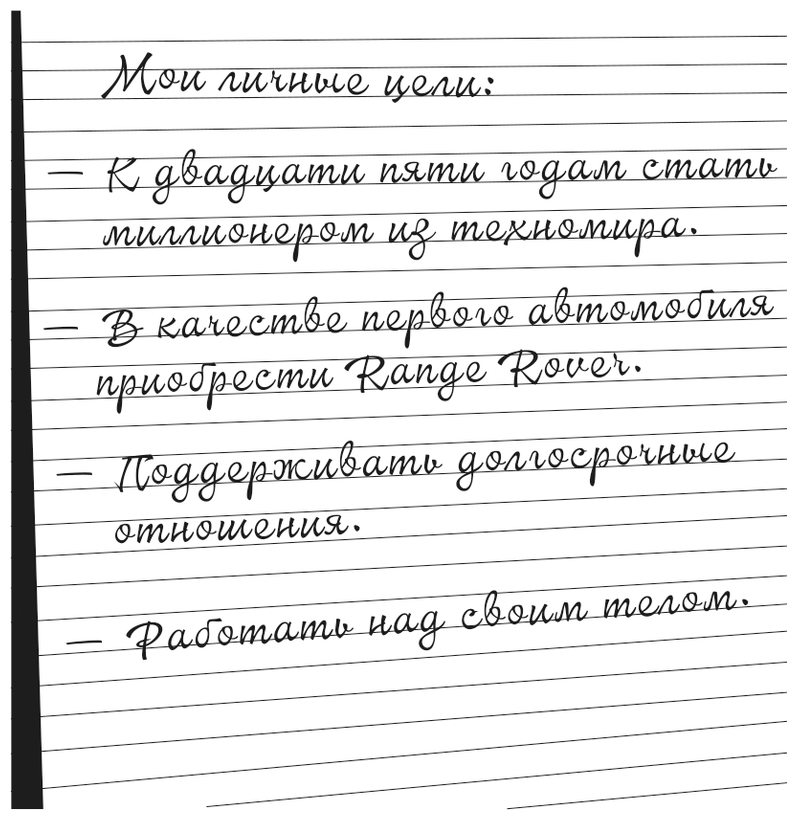 Мои личные цели:
— К двадцати пяти годам стать
миллионером из техномира.
— В качестве первого автомобиля
приобрести Range Rover.
— Поддерживать долгосрочные
отношения.
— Работать над своим телом.